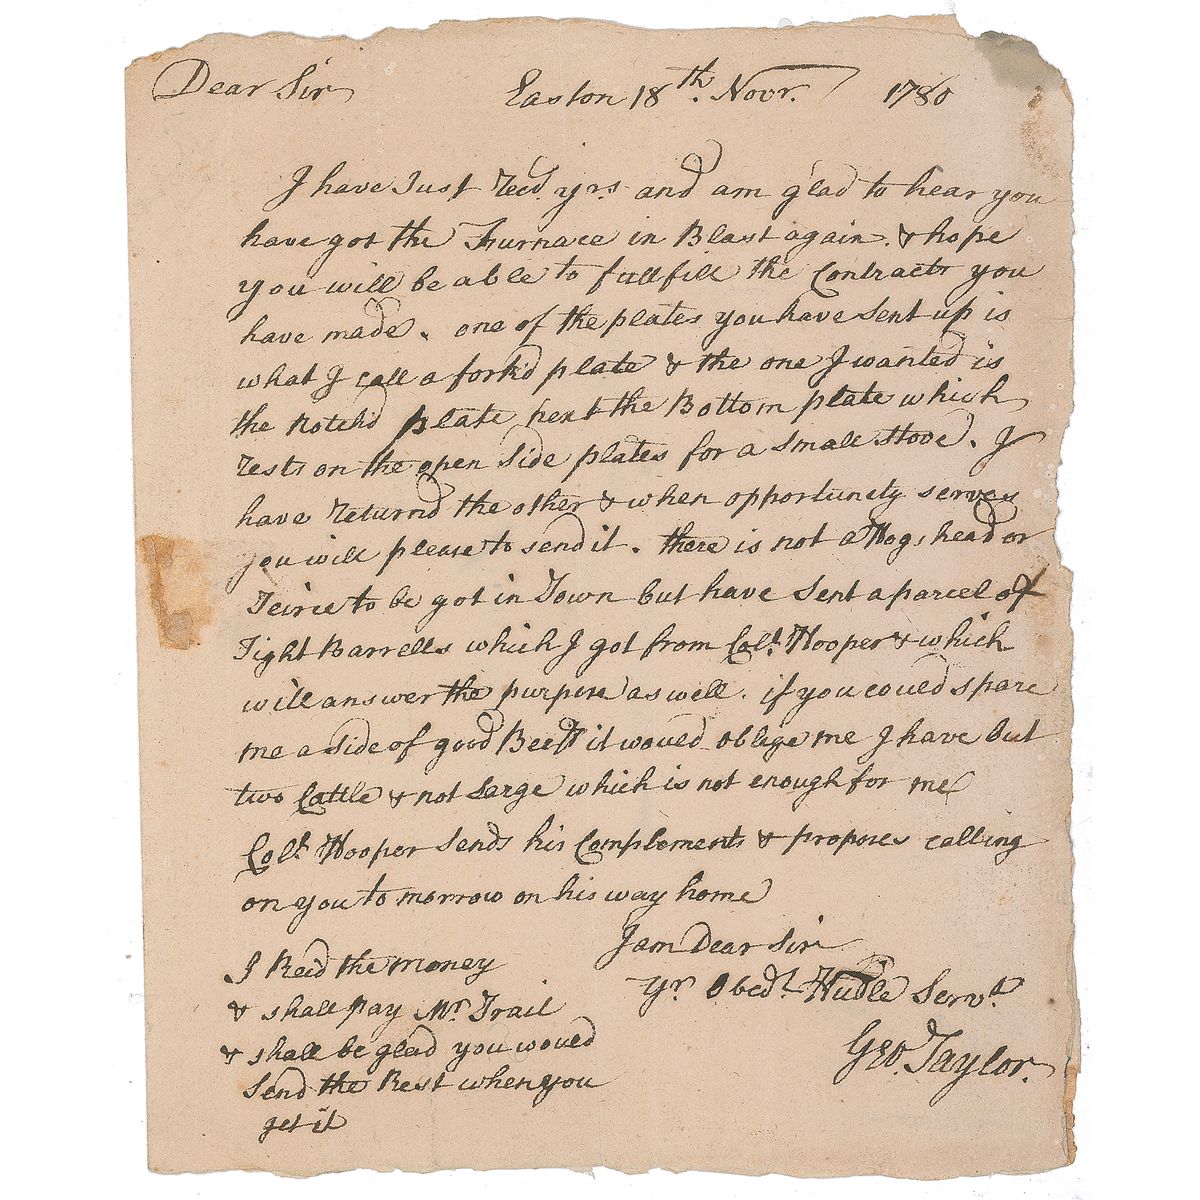 Dear Sir Easton 18th. Novr. 1780
I have Just Recd. yrs. and am glad to hear you
have got the Furnace in Blast again. & hope
you will be able to fullfill the Contracts you
have made. one of the plates you have sent up is
what I call a fork'd plate & the one I wanted is
the Notch'd plate next the Bottom plate which
rests on the open side plates for a small stove. I
have return'd the other & when opportunety serves
you will please to send it. there is not a Hogshead or
Teirce to be got in Town but have sent a parcel of
Tight Barrells which I got from Coll. Hooper & which
will answer the purpose as well. if you could spare
me a side of good Beef it would oblige me I have but
two Cattle & not Large which is not enough for me
Coll. Hooper sends his Complements & proposes calling
on you to morrow on his way home
I am Dear Sir
Yr. Obedt. Hu'ble Servt.
Geo. Taylor.
I Rec'd the money
& shall pay Mr. Trail
& shall be glad you would
send the Rest when you
get it